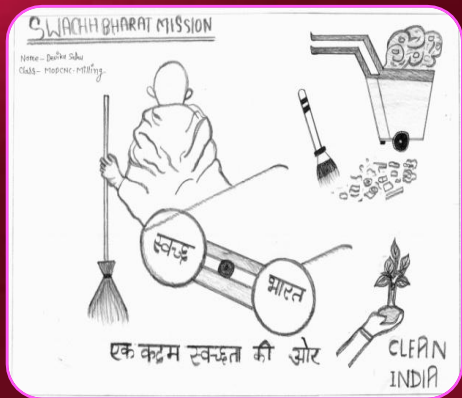 SWACHH BHARAT MISSION
Name - Devika Sahu
Class - MOPCNC-Milling
स्वच्छ
भारत
एक कदम स्वच्छता की ओर
CLEAN
INDIA